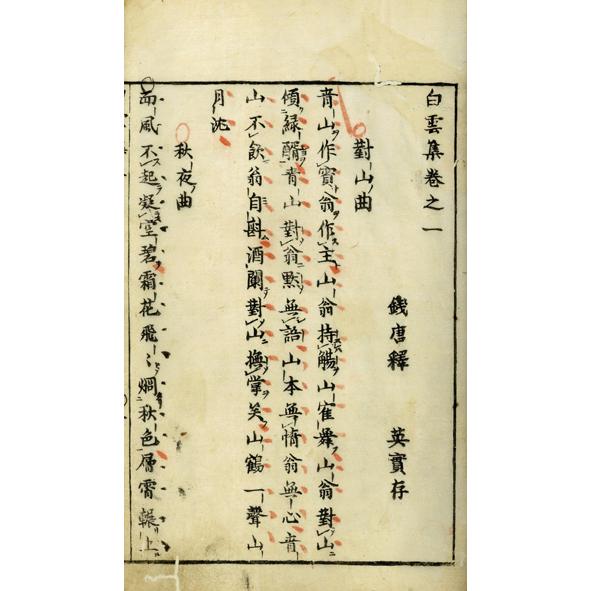 白雲集卷之一
錢唐釋 英實存
對山曲
青山作賓翁作主山翁持觴山隺舞山翁對山
傾緑醑青山對翁默無語山本無情翁無心青
山不飲翁自斟酒闌對山撫掌笑山鶴一聲山
月沈
秋夜曲
雨風不起凝空碧霜花飛〻烟秋色層霄輾上